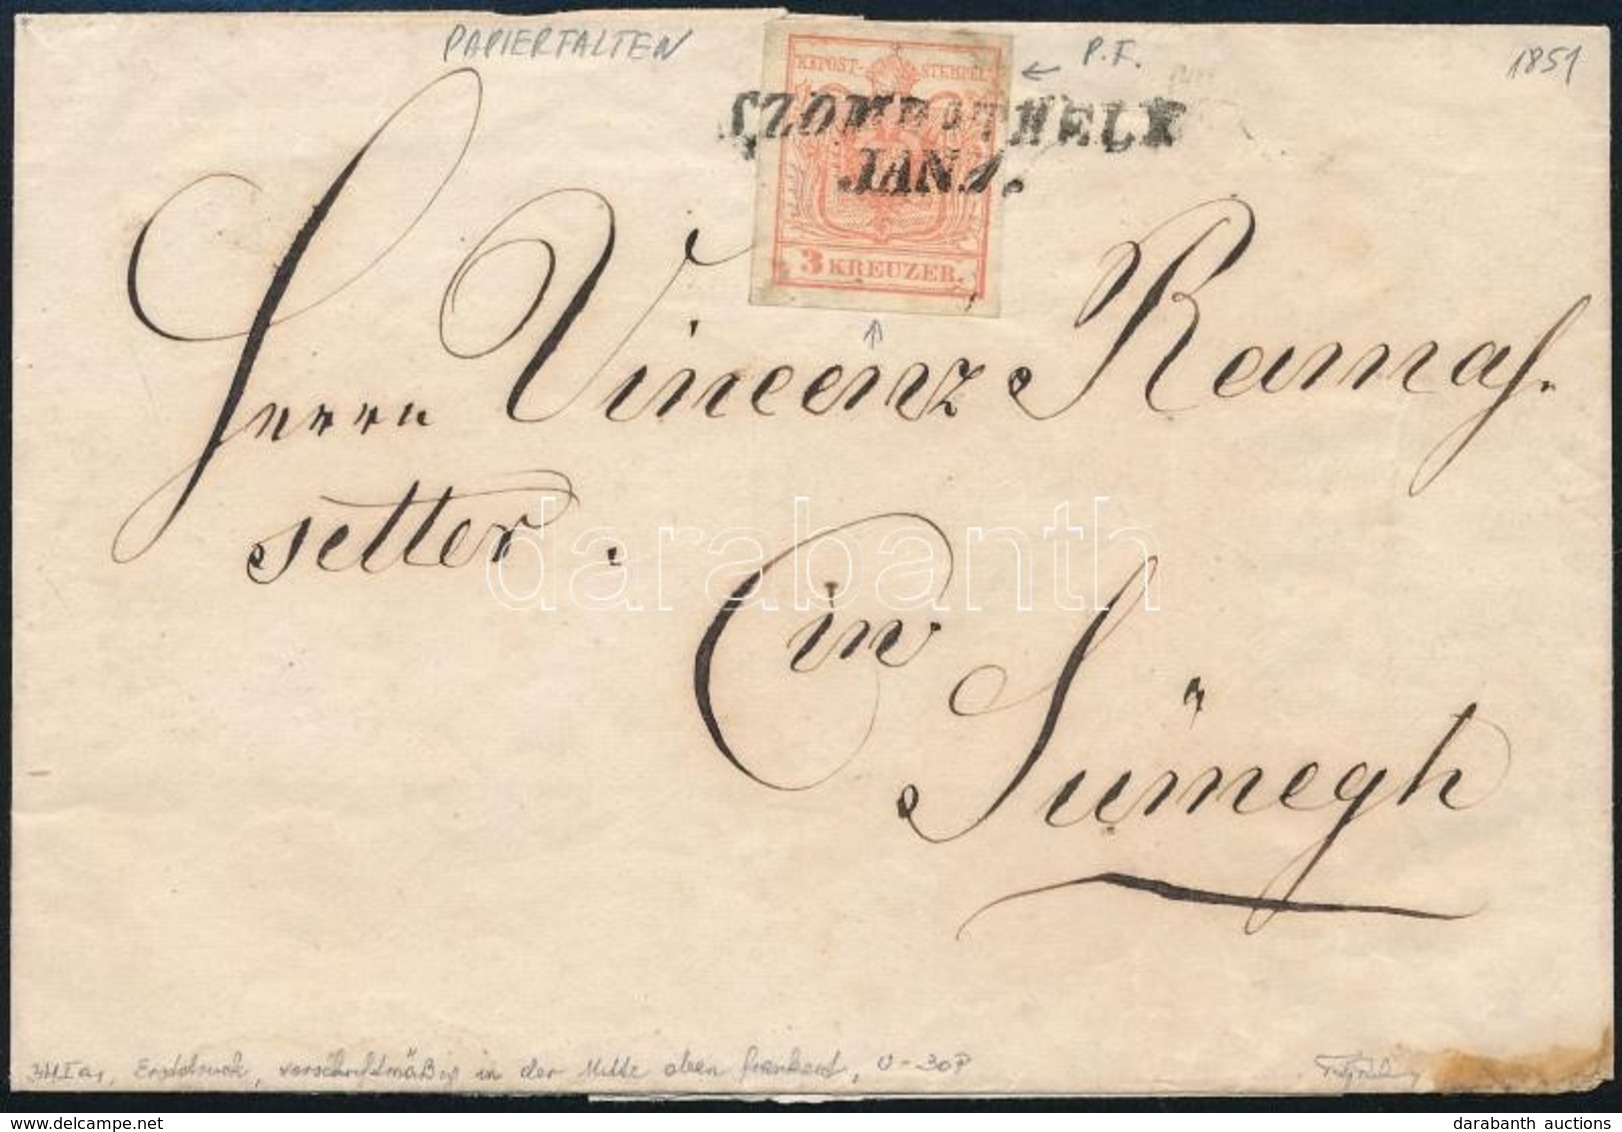 PAPIERFALTEN
P.F.
1851
KKPOST-STEMPEL
SZOMBATHELY
JAN 1.
3 KREUZER.
Herrn Vincenz Ramas-
setter.
in
Sümegh
darabanth
3HIa1, Erstdruck, vorschriftmäßig in der Mitte oben frankiert, 0-30P
darabanth auctions